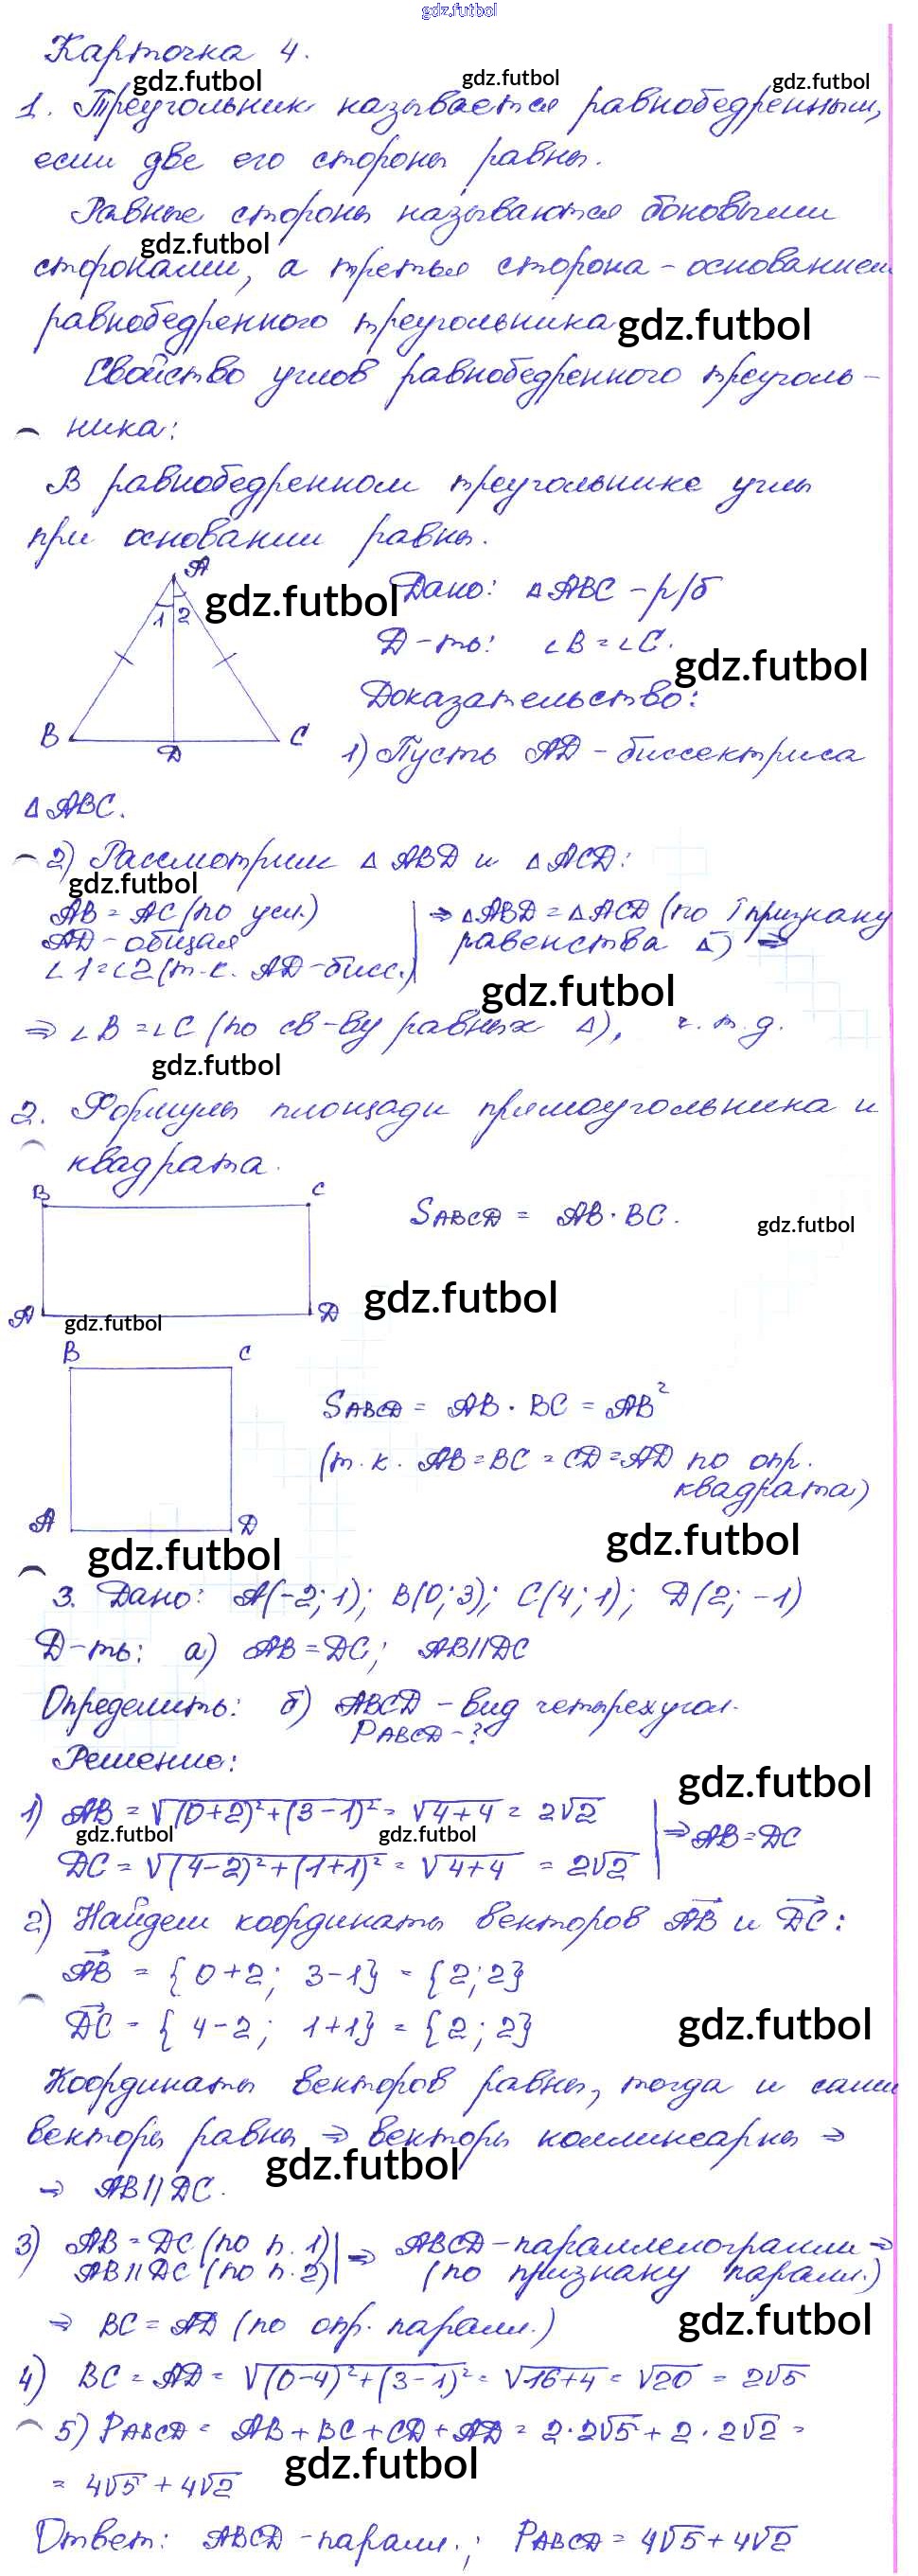 gdz.futbol
Карточка 4.
gdz.futbol gdz.futbol gdz.futbol
1. Треугольник называется равнобедренным,
если две его стороны равны.
Равные стороны называются боковыми
gdz.futbol
сторонами, а третья сторона - основанием
равнобедренного треугольника
gdz.futbol
Свойство углов равнобедренного треуголь-
ника:
В равнобедренном треугольнике углы
при основании равны.
A
1 2
B D C
gdz.futbol
Дано: △ABC - р/б
Д-ть: ∠B = ∠C.
gdz.futbol
Доказательство:
1) Пусть AD - биссектриса
△ABC.
2) Рассмотрим △ABD и △ACD:
gdz.futbol
AB = AC (по усл.)
AD - общая
∠1 = ∠2 (т.к. AD - бисс.)
⇒ △ABD = △ACD (по I признаку
равенства △) ⇒
gdz.futbol
⇒ ∠B = ∠C (по св-ву равных △), ч.т.д.
gdz.futbol
2. Формулы площади прямоугольника и
квадрата.
B C
A D
SABCD = AB · BC.
gdz.futbol
gdz.futbol
gdz.futbol
B C
A D
SABCD = AB · BC = AB²
(т.к. AB = BC = CD = AD по опр.
квадрата)
gdz.futbol
gdz.futbol
3. Дано: A(-2; 1); B(0; 3); C(4; 1); D(2; -1)
Д-ть: а) AB = DC; AB || DC
Определить: б) ABCD - вид четырехугол.
PABCD - ?
Решение:
gdz.futbol
1) AB = √((0+2)²+(3-1)²) = √(4+4) = 2√2
gdz.futbol gdz.futbol
DC = √((4-2)²+(1+1)²) = √(4+4) = 2√2
⇒ AB = DC
2) Найдем координаты векторов AB и DC:
AB = {0+2; 3-1} = {2; 2}
DC = {4-2; 1+1} = {2; 2}
gdz.futbol
Координаты векторов равны, тогда и сами
векторы равны ⇒ векторы коллинеарны ⇒
gdz.futbol
⇒ AB || DC.
3) AB = DC (по п. 1)
AB || DC (по п. 2)
⇒ ABCD - параллелограмм ⇒
(по признаку паралл.)
⇒ BC = AD (по опр. паралл.)
gdz.futbol
4) BC = AD = √((0-4)²+(3-1)²) = √(16+4) = √20 = 2√5
5) PABCD = AB + BC + CD + AD = 2·2√5 + 2·2√2 =
gdz.futbol
= 4√5 + 4√2
Ответ: ABCD - паралл.; PABCD = 4√5 + 4√2